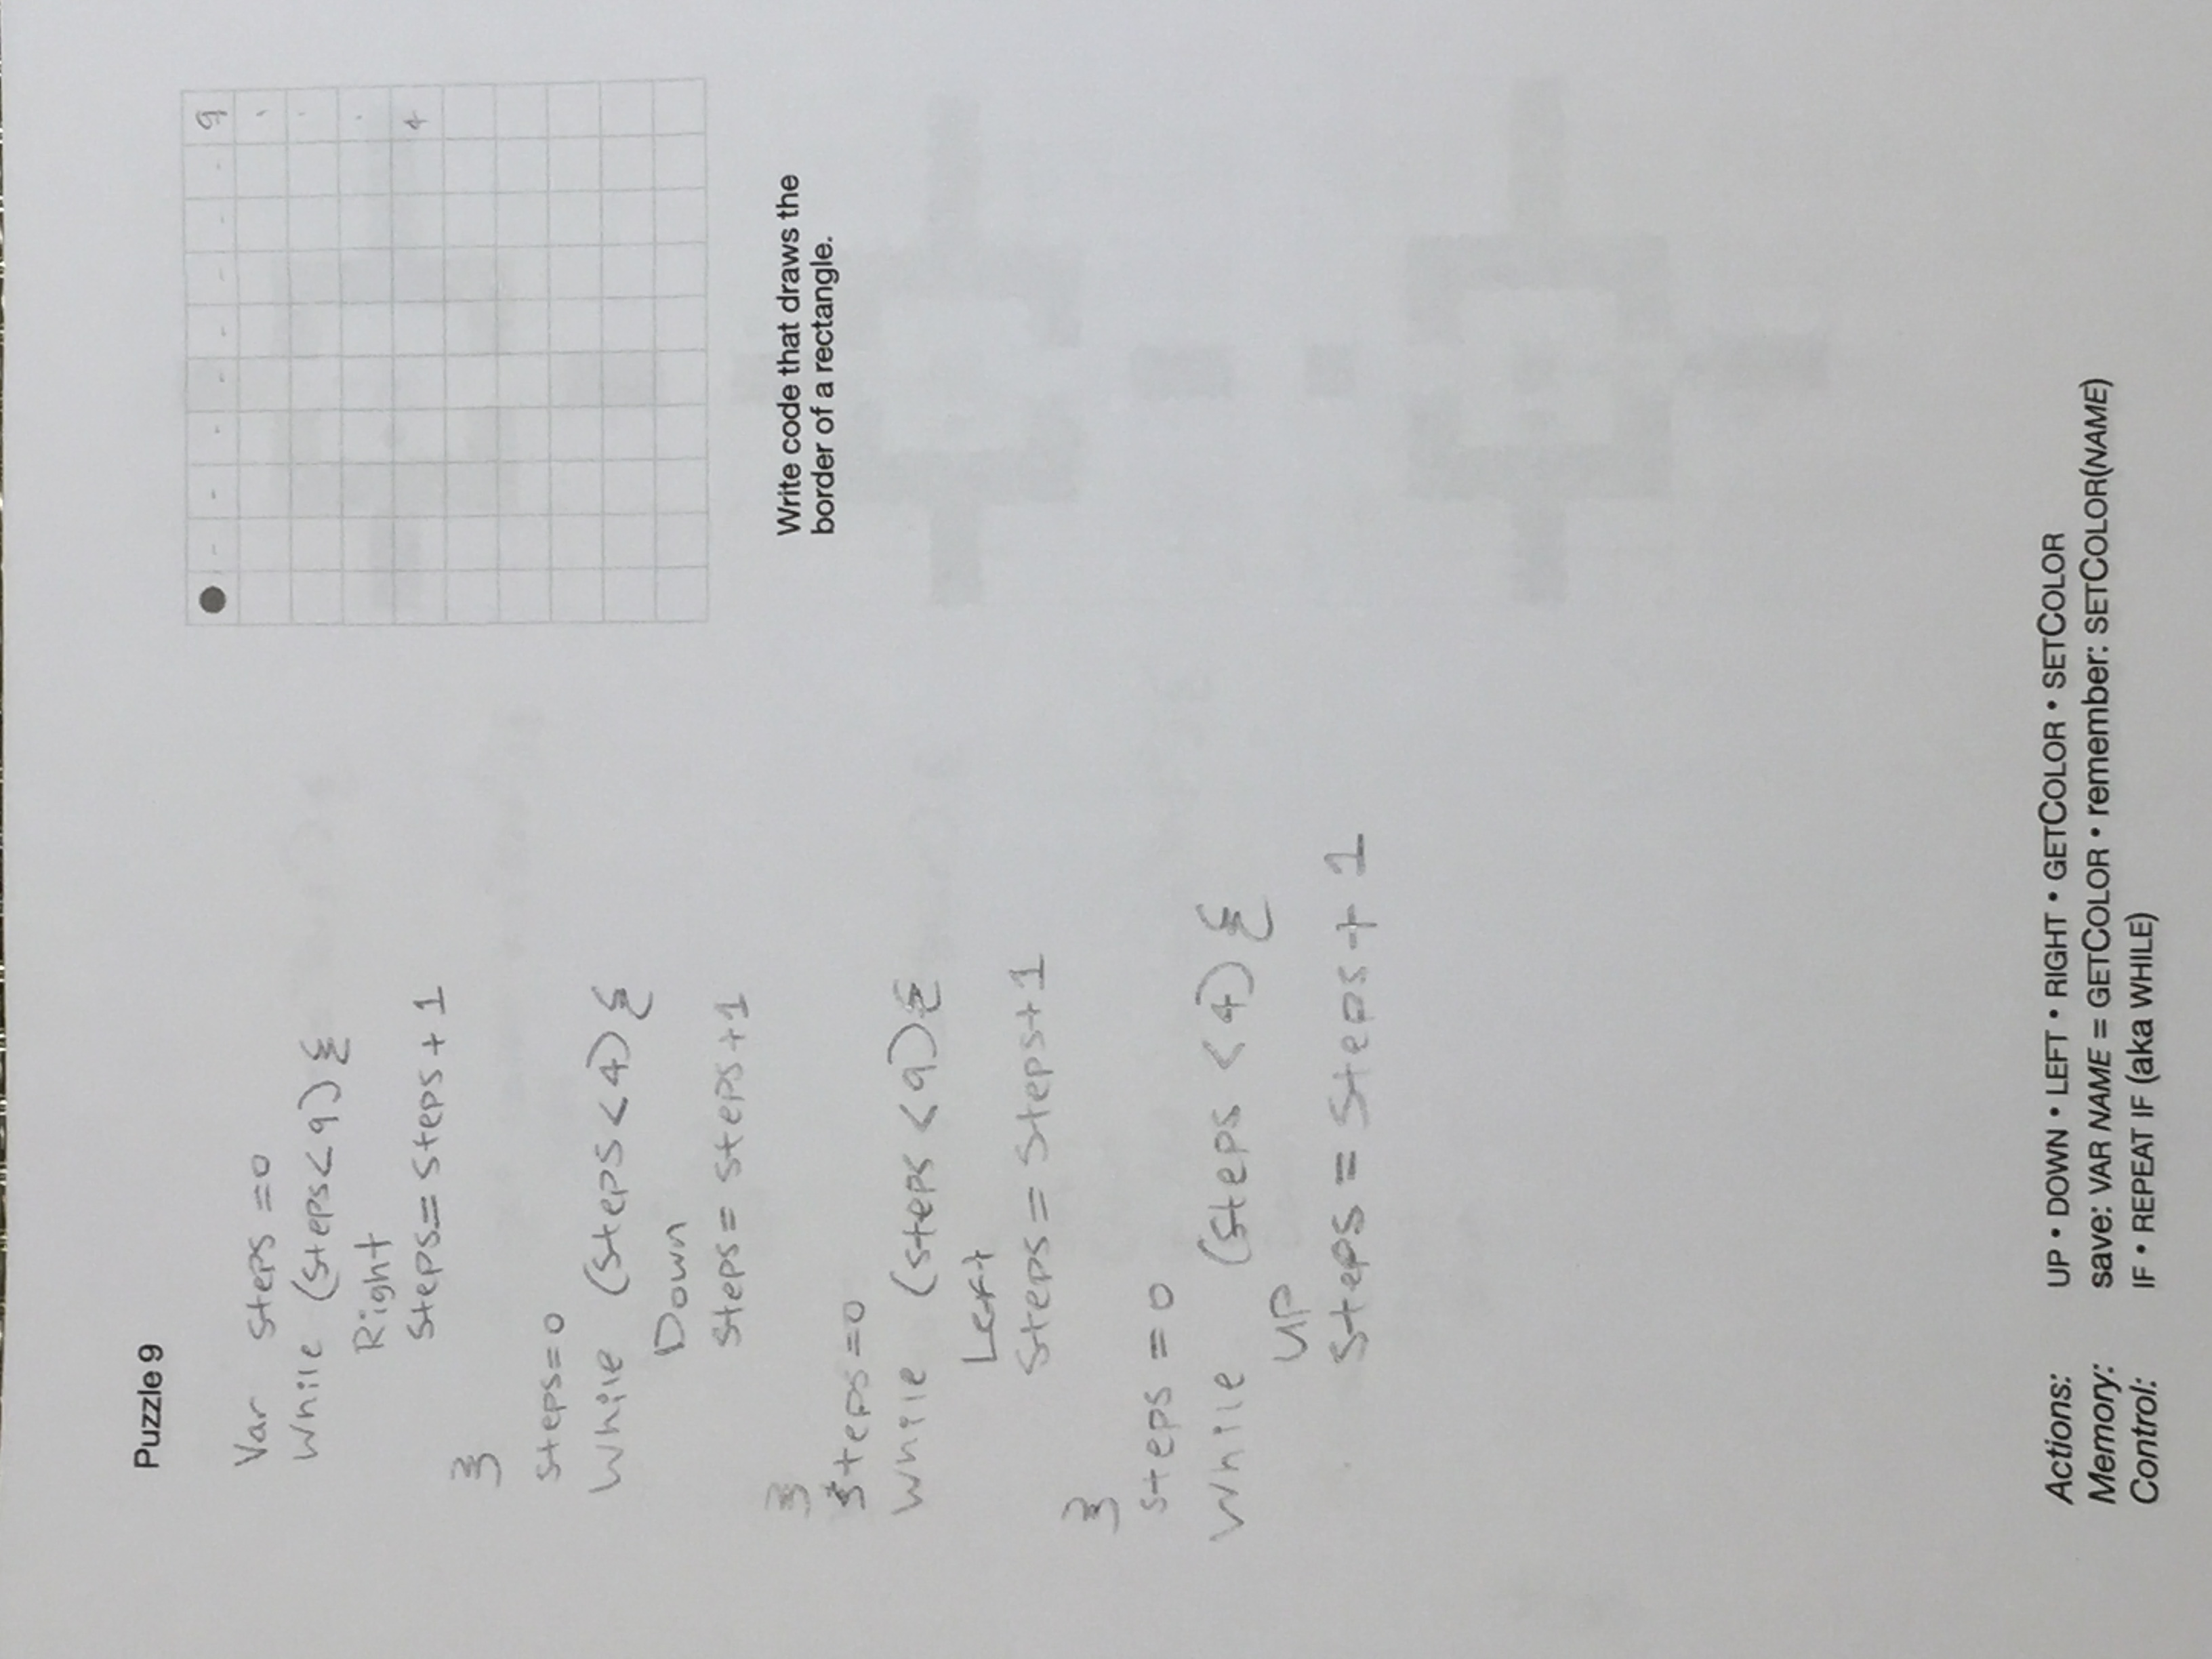 Puzzle 9
Var steps =0
While (steps<9) {
Right
steps= steps + 1
}
steps= 0
While (steps<4) {
Down
steps= steps+1
}
steps=0
While (steps <9) {
Left
steps= steps+1
}
steps = 0
While (steps <4) {
UP
steps = steps + 1
9
4
Write code that draws the
border of a rectangle.
Actions: UP • DOWN • LEFT • RIGHT • GETCOLOR • SETCOLOR
Memory: save: VAR NAME = GETCOLOR • remember: SETCOLOR(NAME)
Control: IF • REPEAT IF (aka WHILE)